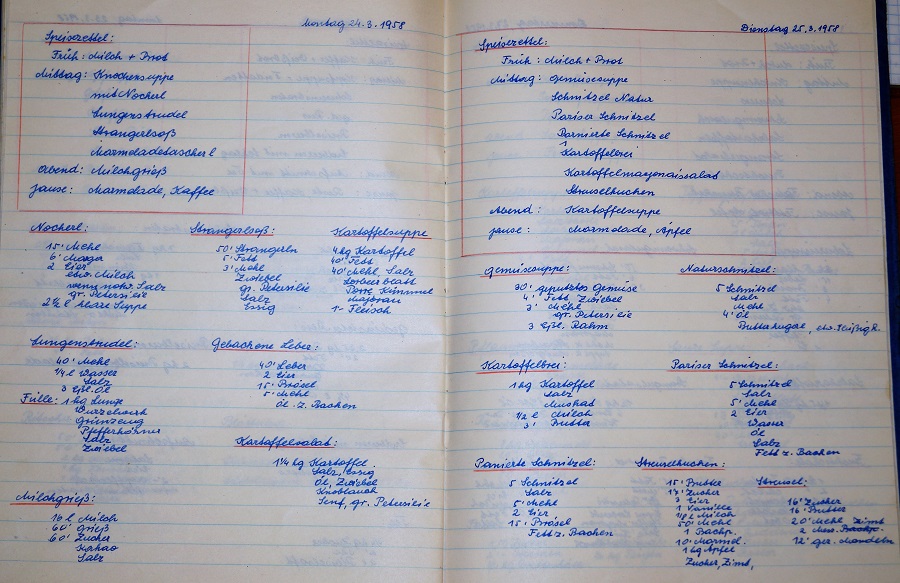 Montag 24.3.1958
Speisezettel:
Früh: Milch + Brot
Mittag: Knochensuppe
mit Nocherl
Lungenstrudel
Strangerlsoß
Marmeladetascherl
Abend: Milchgrieß
Jause: Marmelade, Kaffee
Nocherl:
15' Mehl
6' Marger
2 Eier
etw. Milch
wenn notw. Salz
gr. Petersilie
2½ l klare Suppe
Strangerlsoß:
50' Strangerln
5' Fett
3' Mehl
Zwiebel
gr. Petersilie
Salz
Essig
Kartoffelsuppe
4 kg Kartoffel
40' Fett
40' Mehl, Salz
Lorbeerblatt
Kümmel
Majoran
1- Fleisch
Lungenstrudel:
40' Mehl
¼ l Wasser
Salz
3 Eßl. Öl
Fülle: 1 kg Lunge
Wurzelwerk
Grünzeug
Pfefferkörner
Salz
Zwiebel
Gebackene Leber:
40' Leber
2 Eier
15' Brösel
5' Mehl
Öl z. Backen
Kartoffelsalat:
1¼ kg Kartoffel
Salz, Essig
Öl, Zwiebel
Knoblauch
Senf, gr. Petersilie
Milchgrieß:
16 l Milch
60' Grieß
60' Zucker
Kakao
Salz
Dienstag 25.3.1958
Speisezettel:
Früh: Milch + Brot
Mittag: Gemüsesuppe
Schnitzel Natur
Pariser Schnitzel
Parnierte Schnitzel
Kartoffelbrei
Kartoffelmayonaissalad
Streuselkuchen
Abend: Kartoffelsuppe
Jause: Marmelade, Äpfel
Gemüsesuppe:
30' geputztes Gemüse
4' Fett, Zwiebel
3' Mehl
gr. Petersilie
3 Eßl. Rahm
Naturschnitzel:
5 Schnitzel
Salz
Mehl
4' Öl
Butterkugel, etw. Flüßigk.
Kartoffelbrei:
1 kg Kartoffel
Salz
Muskat
½ l Milch
3' Butter
Pariser Schnitzel:
5 Schnitzel
Salz
5' Mehl
2 Eier
Wasser
Öl
Salz
Fett z. Backen
Panierte Schnitzel:
5 Schnitzel
Salz
5' Mehl
2 Eier
15' Brösel
Fett z. Backen
Streuselkuchen:
15' Butter
17' Zucker
3 Eier
1 Vanille
¼ l Milch
50' Mehl
1 Backp.
10' Marmel.
1 kg Äpfel
Zucker, Zimt,
Streusel:
16' Zucker
16' Butter
20' Mehl Zimt
2 Mess. Backp.
12' ger. Mandeln